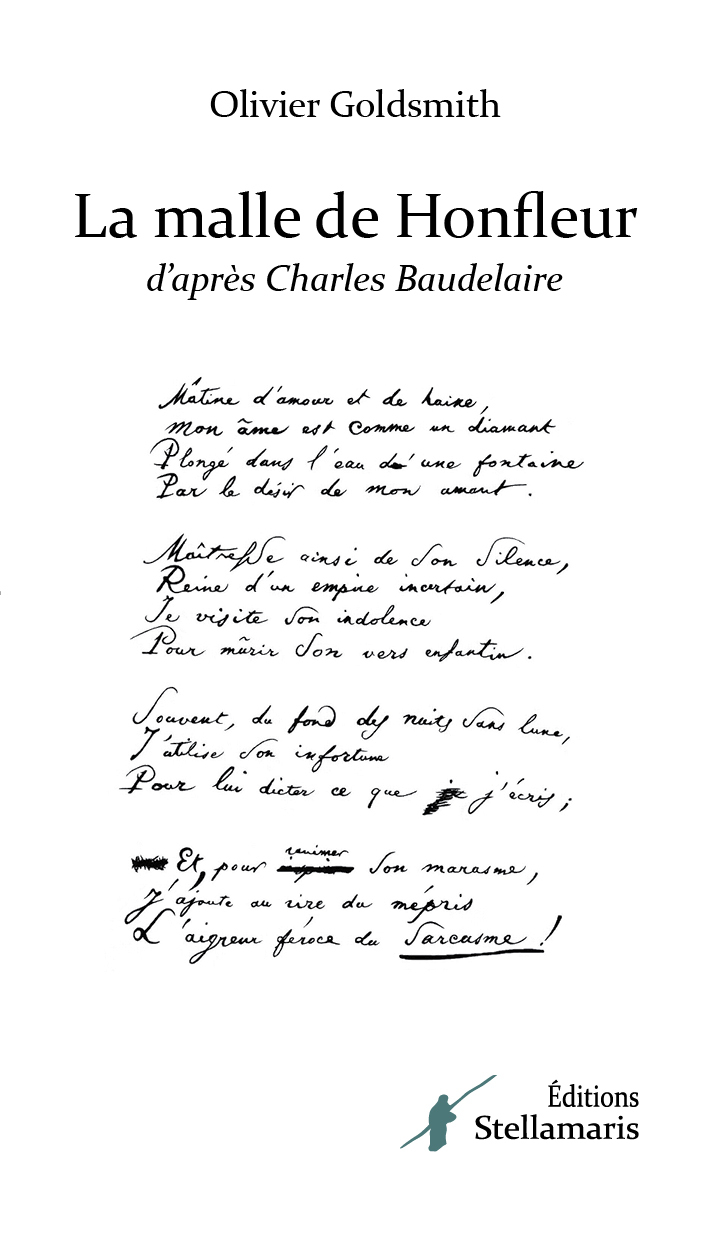 Olivier Goldsmith
La malle de Honfleur
d'après Charles Baudelaire
Mâtine d'amour et de haine,
Mon âme est comme un diamant
Plongé dans l'eau d'une fontaine
Par le désir de mon amant.
Maîtresse ainsi de son silence,
Reine d'un empire incertain,
Je visite son indolence
Pour mûrir son vers enfantin.
Souvent, du fond des nuits sans lune,
J'utilise son infortune
Pour lui dicter ce que j'écris;
Et, pour ranimer son marasme,
J'ajoute au rire du mépris
L'aigreur féroce du Sarcasme!
Éditions
Stellamaris